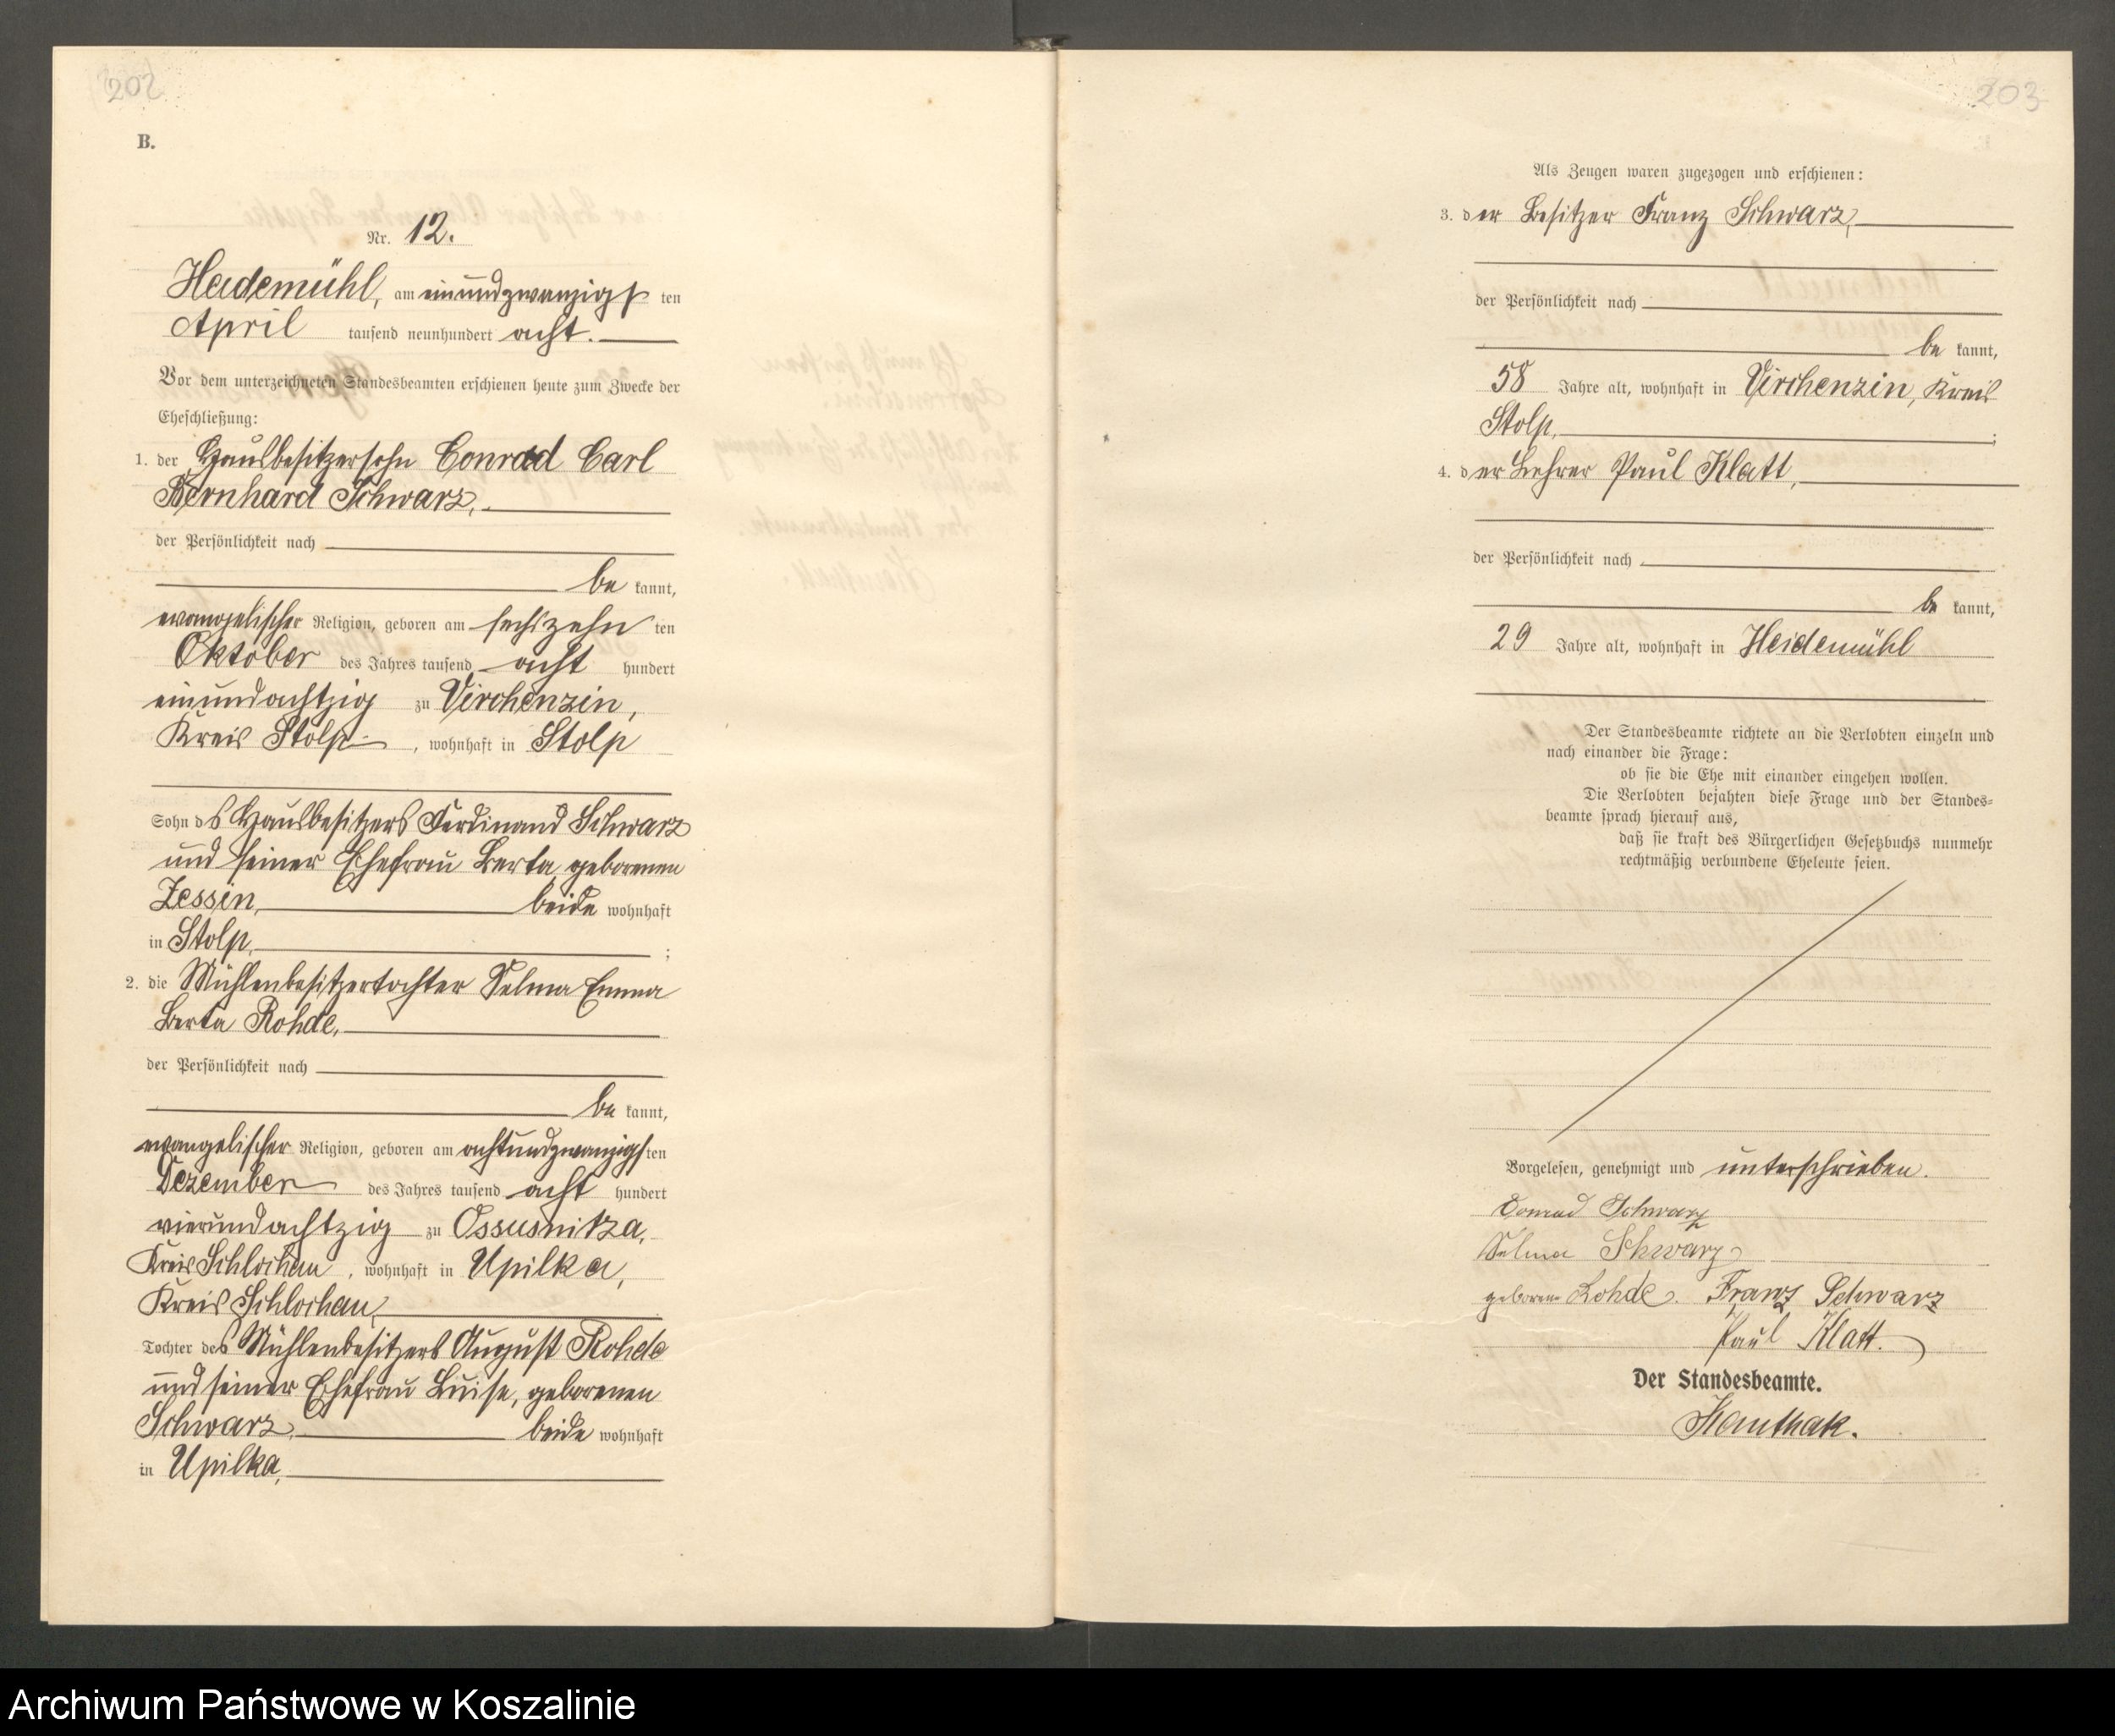 202
B.
Nr. 12.
Heidemühl, am einundzwanzigsten
April tausend neunhundert acht.
Vor dem unterzeichneten Standesbeamten erschienen heute zum Zwecke der
Eheschließung:
1. der Hausbesitzersohn Conrad Carl
Bernhard Schwarz,
der Persönlichkeit nach
be kannt,
evangelischer Religion, geboren am sechszehn ten
Oktober des Jahres tausend acht hundert
einundachtzig zu Virchenzin,
Kreis Stolp, wohnhaft in Stolp
Sohn des Hausbesitzers Ferdinand Schwarz
und seiner Ehefrau Berta, geborenen
Zessin, beide wohnhaft
in Stolp. ;
2. die Mühlenbesitzertochter Selma Emma
Berta Rohde,
der Persönlichkeit nach
be kannt,
evangelischer Religion, geboren am achtundzwanzigsten
Dezember des Jahres tausend acht hundert
vierundachtzig zu Ossusnitza,
Kreis Schlochau, wohnhaft in Upilka,
Kreis Schlochau,
Tochter des Mühlenbesitzers August Rohde
und seiner Ehefrau Luise, geborenen
Schwarz, beide wohnhaft
in Upilka,
203
Als Zeugen waren zugezogen und erschienen:
3. der Besitzer Franz Schwarz,
der Persönlichkeit nach
be kannt,
58 Jahre alt, wohnhaft in Virchenzin, Kreis
Stolp, ;
4. der Lehrer Paul Klatt,
der Persönlichkeit nach
be kannt,
29 Jahre alt, wohnhaft in Heidemühl
Der Standesbeamte richtete an die Verlobten einzeln und
nach einander die Frage:
ob sie die Ehe mit einander eingehen wollen.
Die Verlobten bejahten diese Frage und der Standes=
beamte sprach hierauf aus,
daß sie kraft des Bürgerlichen Gesetzbuchs nunmehr
rechtmäßig verbundene Eheleute seien.
Vorgelesen, genehmigt und unterschrieben.
Conrad Schwarz
Selma Schwarz
geborene Rohde. Franz Schwarz
Paul Klatt.
Der Standesbeamte.
Kauthak.
Archiwum Państwowe w Koszalinie